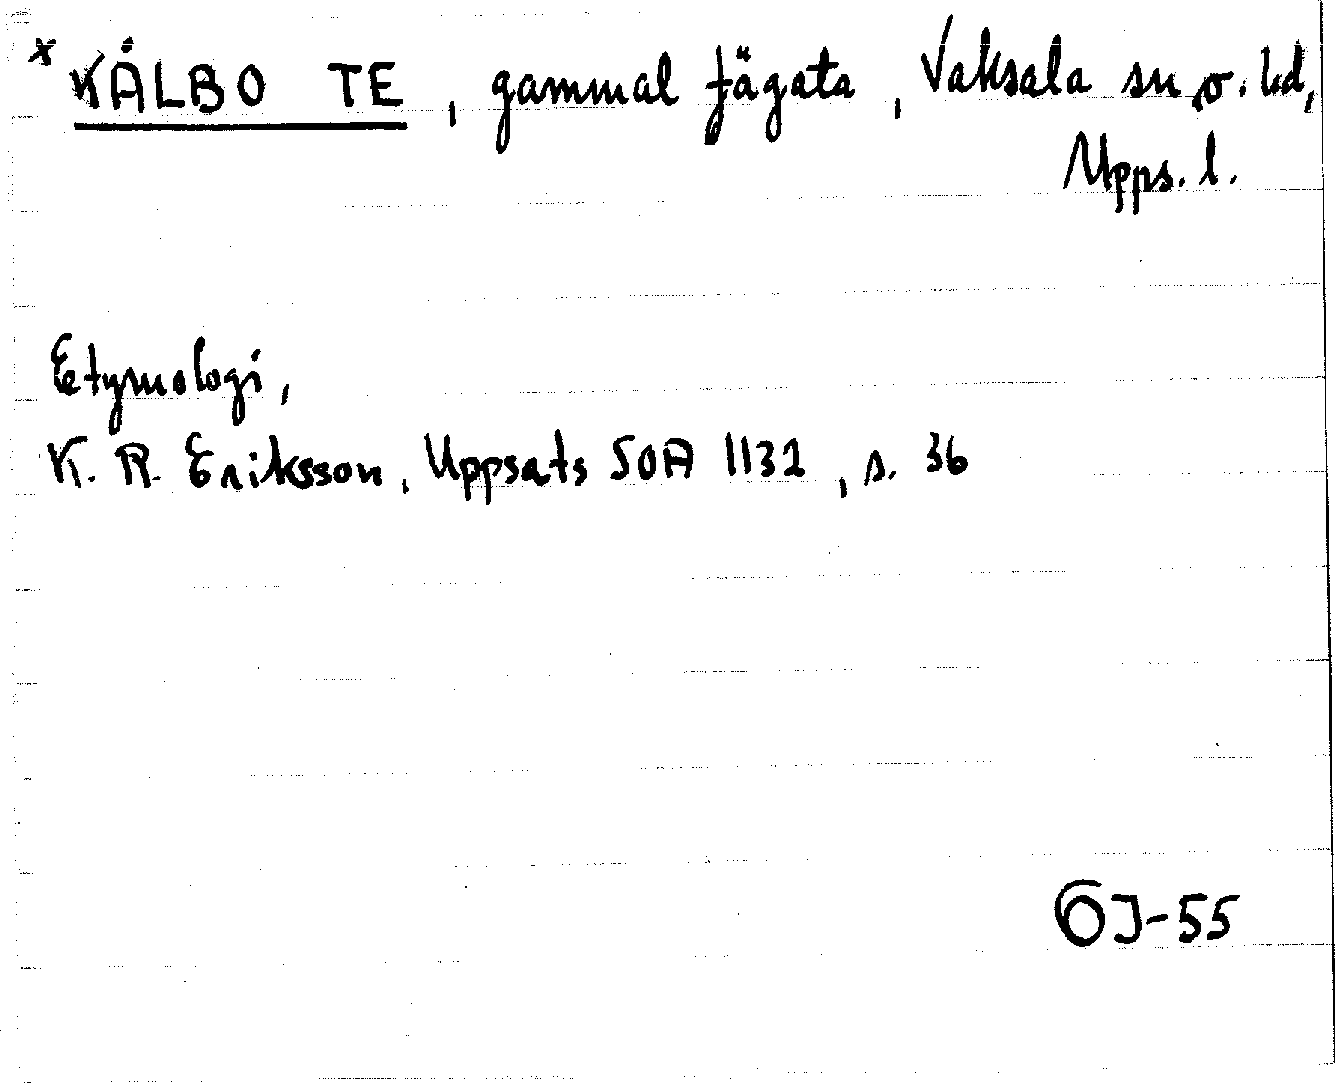 x KÅLBO TE, gammal fägata, Vaksala sn o. hd,
Upps. l.
Etymologi,
K. R. Eriksson, Uppsats SOA 1132, s. 36
ÖJ-55